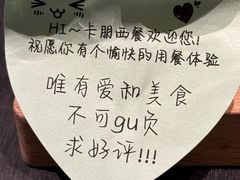 HI~卡朋西餐欢迎您!
祝愿你有个愉快的用餐体验
唯有爱和美食
不可gu负
求好评!!!